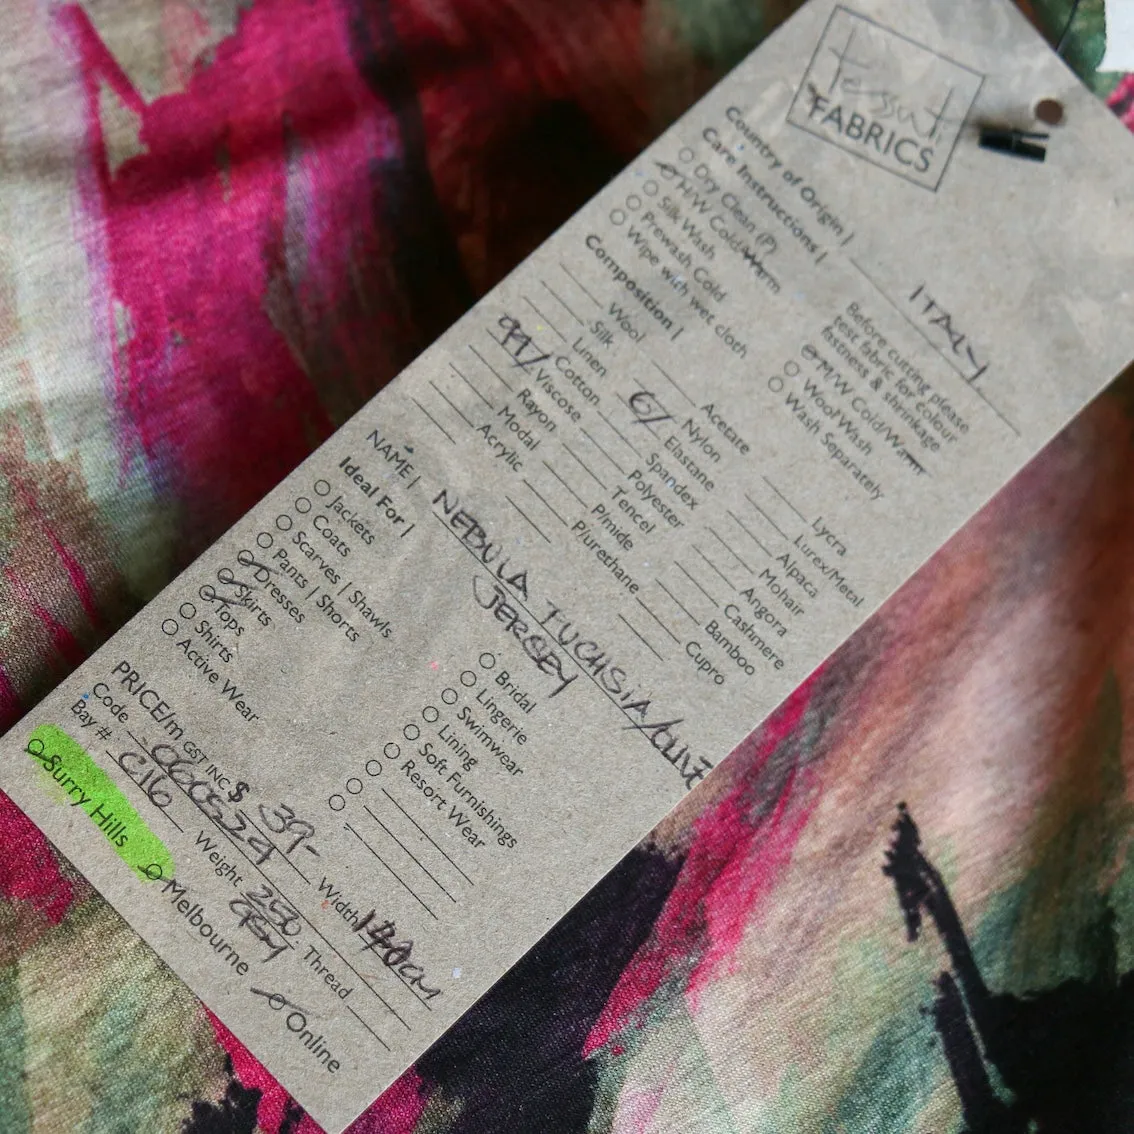 Tessuti
FABRICS
Country of Origin | ITALY
Care Instructions |
Dry Clean (P)
H/W Cold/Warm
Silk Wash
Prewash Cold
Wipe with wet cloth
Before cutting please
test fabric for colour
fastness & shrinkage
M/W Cold/Warm
Wool Wash
Wash Separately
Composition |
Wool
Silk
Linen
Cotton
Viscose
Rayon
Modal
Acrylic
Acetate
Nylon
6/ Elastane
Spandex
Polyester
Tencel
P/mide
P/urethane
Lycra
Lurex/Metal
Alpaca
Mohair
Angora
Cashmere
Bamboo
Cupro
NAME | NEBULA FUCHSIA/OLIVE
JERSEY
Ideal For |
Jackets
Coats
Scarves | Shawls
Pants | Shorts
Dresses
Skirts
Tops
Shirts
Active Wear
Bridal
Lingerie
Swimwear
Lining
Soft Furnishings
Resort Wear
PRICE/m GST INC $ 39- Width 140cm
Code 0005279
Bay # C16 Weight 250 GSM Thread
Surry Hills Melbourne Online